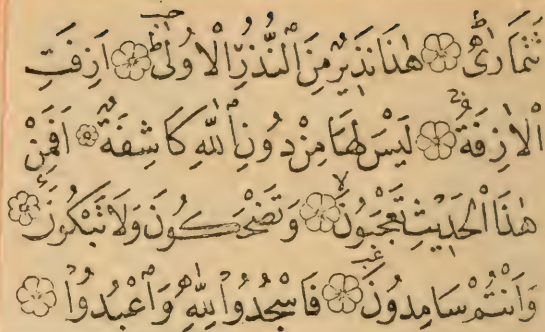 تَتَمَارٰى ۝ هٰذَا نَذِيرٌ مِنَ النُّذُرِ الْاُولٰى ۝ اَزِفَتِ
الْاٰزِفَةُ ۝ لَيْسَ لَهَا مِنْ دُونِ اللّٰهِ كَاشِفَةٌ ۝ اَفَمِنْ
هٰذَا الْحَدِيثِ تَعْجَبُونَ ۝ وَتَضْحَكُونَ وَلَا تَبْكُونَ ۝
وَاَنْتُمْ سَامِدُونَ ۝ فَاسْجُدُوا لِلّٰهِ وَاعْبُدُوا ۝